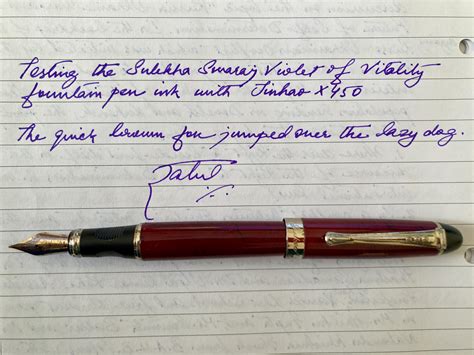 Testing the Sulekha Swaraj Violet of Vitality
fountain pen ink with Jinhao X450
The quick brown fox jumped over the lazy dog.